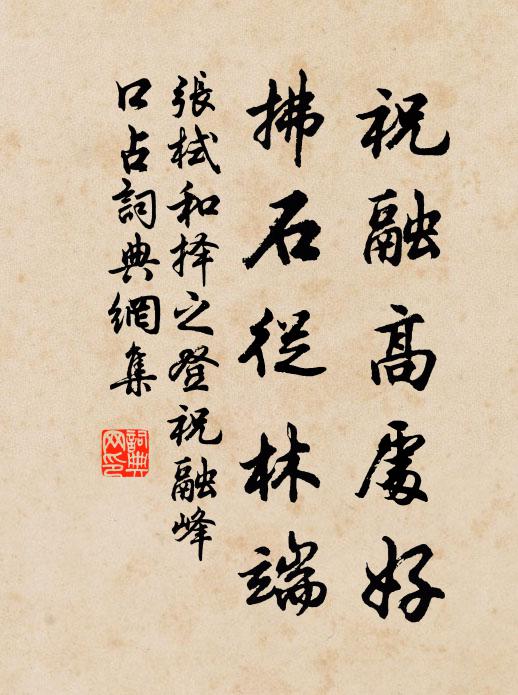 祝融高處好
拂石從林端
張栻和择之登祝融峰
口占詞典網集
詞典网印